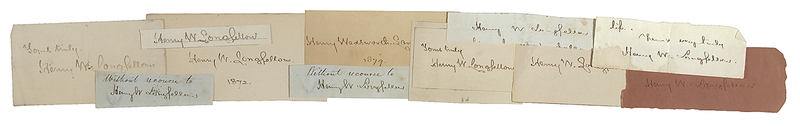 Yours truly
Henry W. Longfellow
Without recourse to
Henry W. Longfellow.
Henry W. Longfellow
Henry W. Longfellow.
1872.
Henry Wadsworth Long
1879
Without recourse to
Henry W. Longfellow
Yours truly
Henry W. Longfellow
Henry W. Longfellow
Henry W. Long
life.
Yours very truly
Henry W. Longfellow.
Henry W. Longfellow